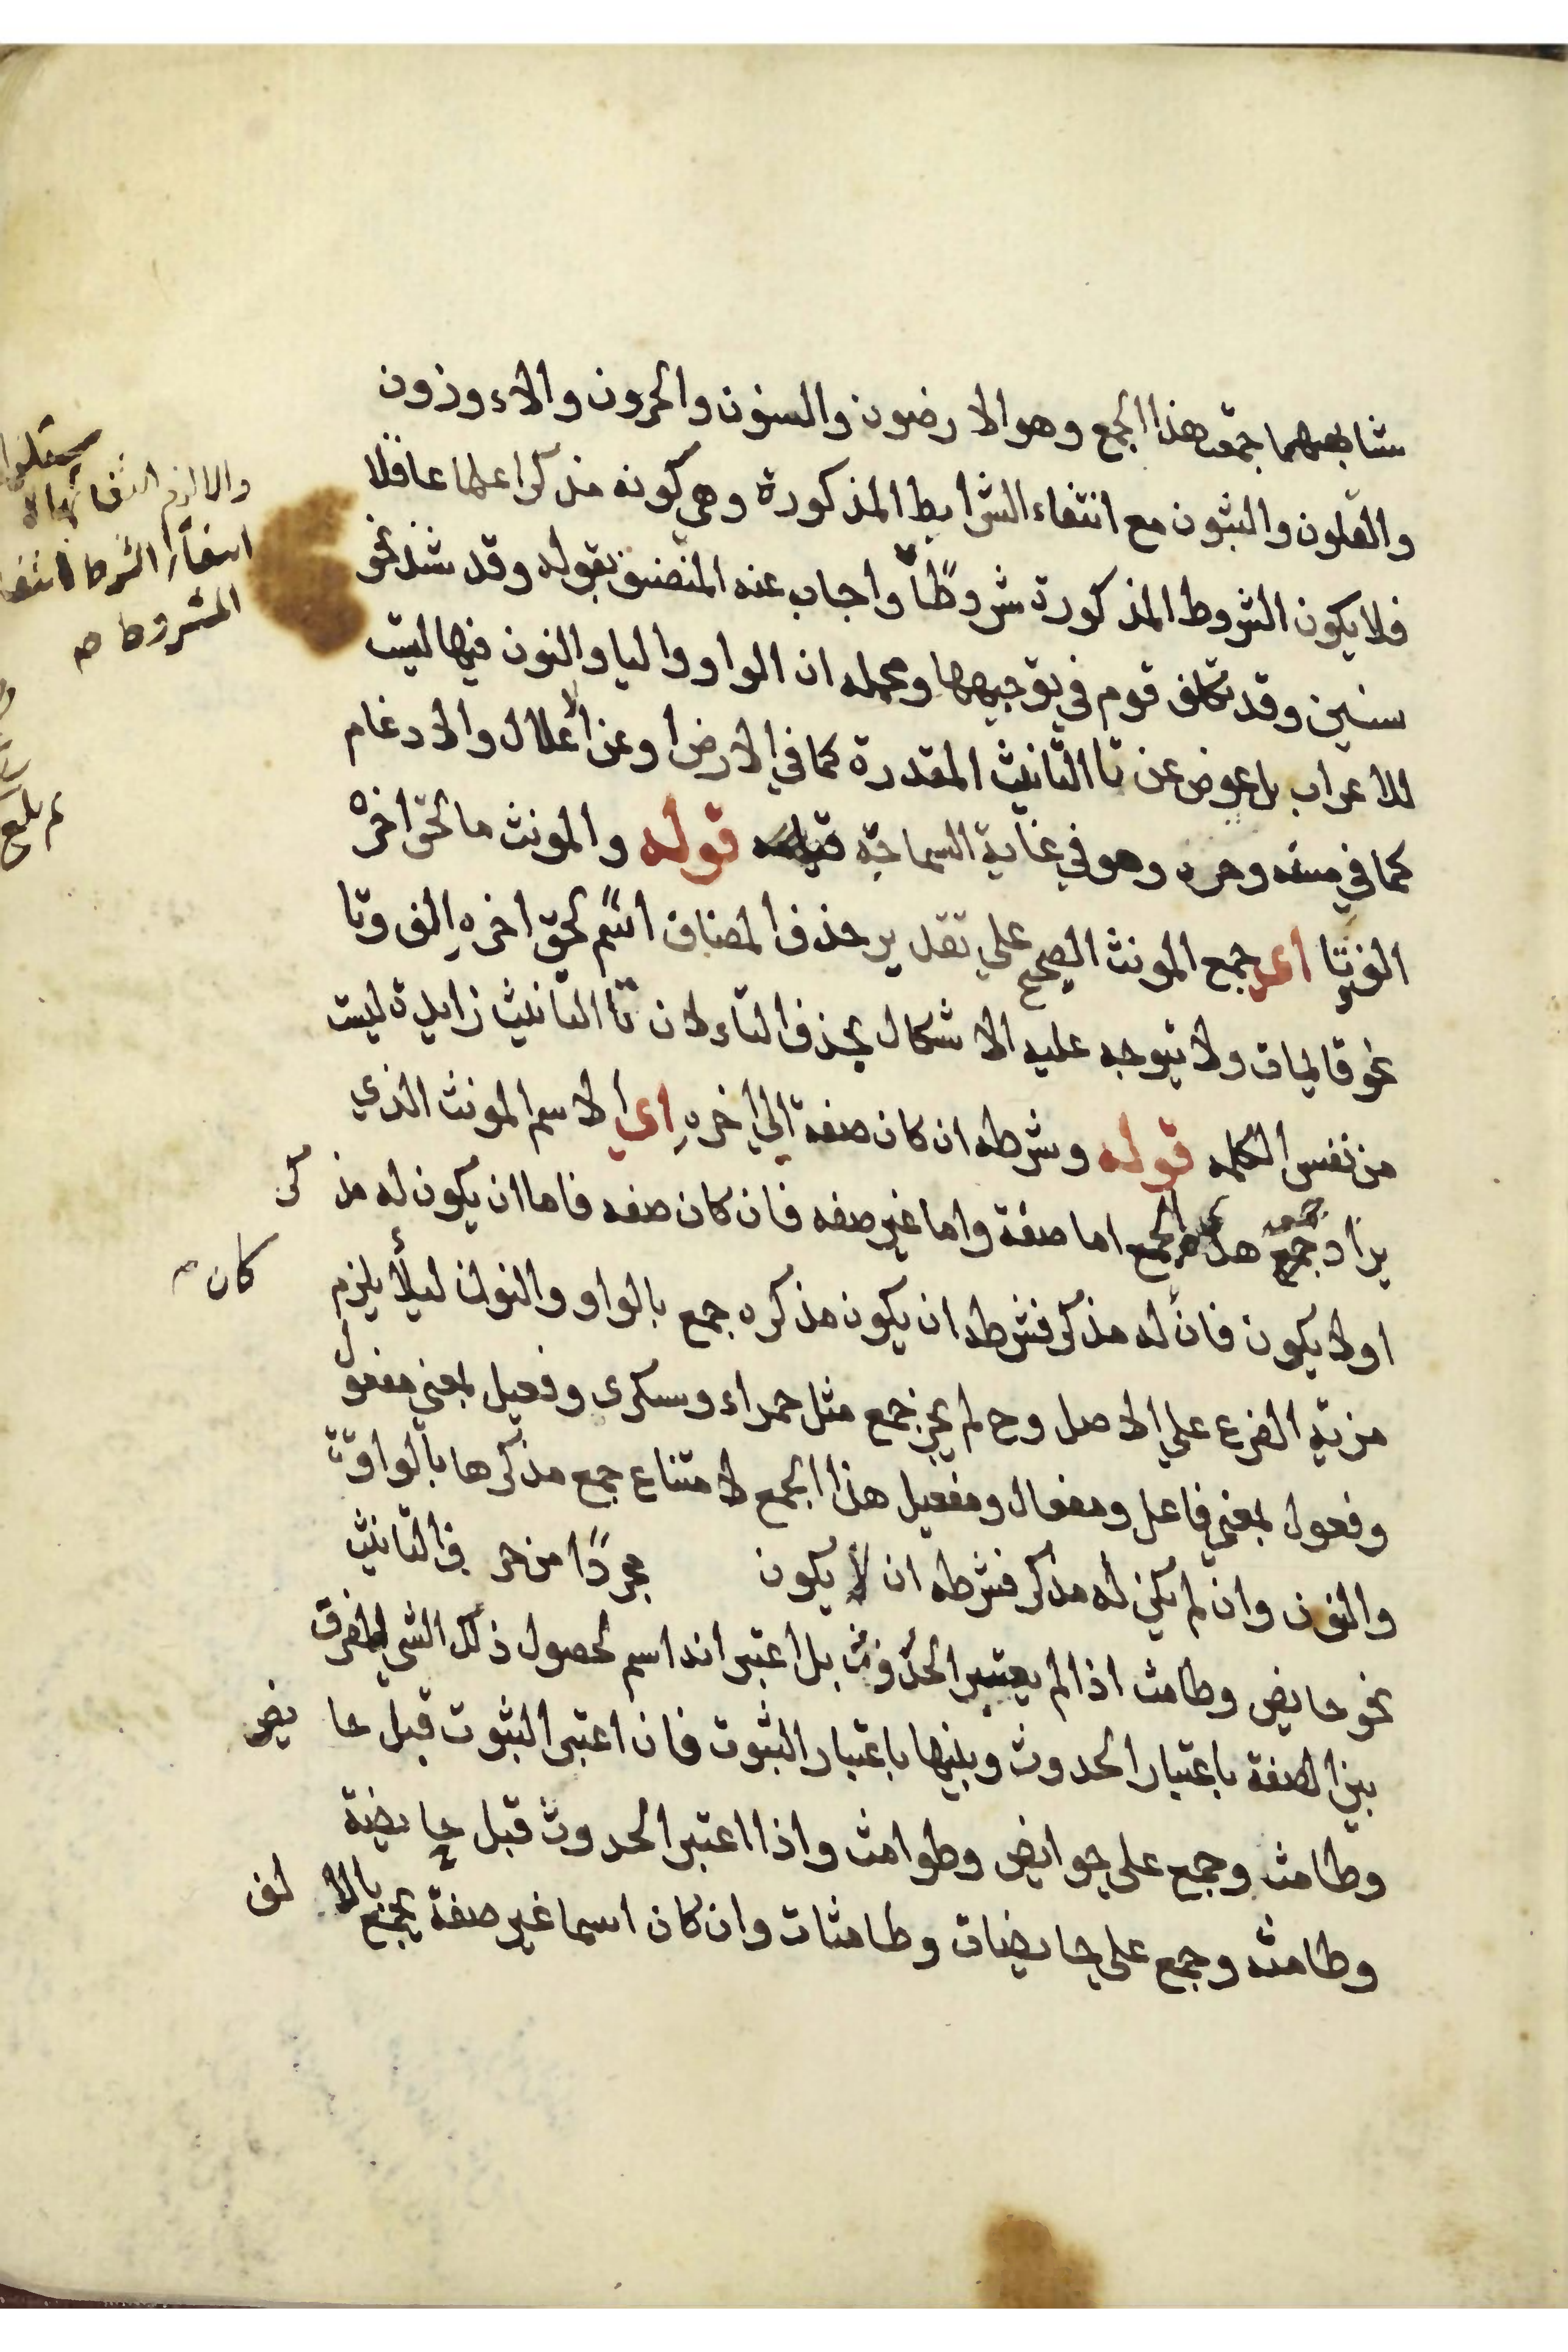 مشابههما جمعت هذا الجمع وهو الارضون والسنون والحرون والاوزون
والقلون والثبون مع انتفاء الشرايط المذكورة وهي كونه مذكرا علما عاقلا
فلا يكون الشروط المذكورة شروطًا واجاب عنه المصنف بقوله وقد شذ نحو
سنين وقد تكلف قوم في توجيهها ومجمله ان الواو واليا والنون فيها ليت
للاعراب بل عوض عن تا التانيث المقدرة كما في الارض او عن الاعلال والادغام
كما في سنه وحره وهو في غاية السماجة قوله والمونث ما لحق اخره
الف وتا اى جمع المونث الصحيح على تقدير حذف المضاف اسم لحق اخره الف وتا
نحو قايمات ولا يتوجه عليه الاشكال بحذف التاء لان تا التانيث زايدة ليت
من نفس الكلمه قوله وشرطه ان كان صفة الى اخره اى الاسم المونث الذي
يراد جمعه هذا الجمع اما صفة واما غير صفه فان كان صفه فاما ان يكون له مذكر
او لا يكون فان له مذكر فشرطه ان يكون مذكره جمع بالواو والنون ليلا يلزم
كان
مزية الفرع على الاصل وح لم يجز جمع مثل حمراء وسكرى وفعيل بمعنى مفعول
وفعول بمعنى فاعل ومفعال ومفعيل هذا الجمع لامتناع جمع مذكرها بالواو
والنون وان لم يكن له مذكر فشرطه ان لا يكون مجردًا من حرف التانيث
نحو حايض وطامث اذا لم يعتبر الحدوث بل اعتبر انه اسم لحصول ذلك الشي للفرق
بين الصفة باعتبار الحدوث وبينها باعتبار الثبوت فان اعتبر الثبوت قيل حايض
وطامث وجمع على حوايض وطوامث واذا اعتبر الحدوث قيل حايضة
وطامثه وجمع على حايضات وطامثات وان كان اسما غير صفة يجمع بالالف
والا لزم
انتفاء الشرط انتفا
المشروط